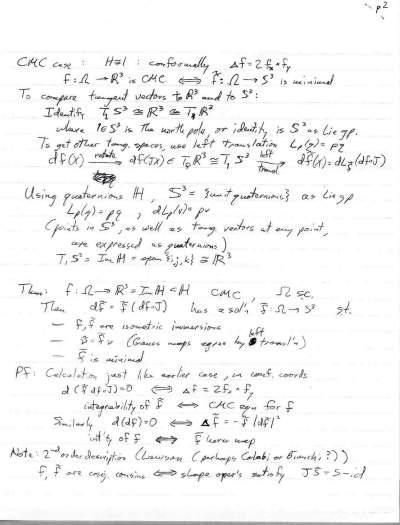 p 2
CMC case : H≡1 : conformally Δf = 2 fx × fy
f : Ω → ℝ³ is CMC ⟺ f̃ : Ω → S³ is minimal
To compare tangent vectors to ℝ³ and to S³ :
Identify T₁S³ ≅ ℝ³ ≅ Tₚℝ³
where 1∈S³ is the north pole, or identity in S³ as Lie gp.
To get other tang. spaces, use left translation Lp(q) = pq
df(X) rotate→ df(JX) ∈ ℝ³ ≅ T₁S³ left transl.→ df̃(X) = dL (df∘J)
Using quaternions ℍ , S³ = {unit quaternions} as Lie gp
Lp(q) = pq , dLp(v) = pv
(points in S³, as well as tang. vectors at any point,
are expressed as quaternions)
T₁S³ = Im ℍ = span {i,j,k} ≅ ℝ³
Thm: f : Ω → ℝ³ = Im ℍ < ℍ CMC Ω s.c.
Then df̃ = f̃ (df∘J) has a sol'n f̃ : Ω → S³ st.
— f, f̃ are isometric immersions
— ν̃ = f̃ν (Gauss maps agree by left transl'n)
— f̃ is minimal
Pf: Calculation just like earlier case, in conf. coords
d(f̃ df∘J) = 0 ⟺ Δf = 2 fx × fy
integrability of f̃ ⟺ CMC eqn for f
Similarly d(df) = 0 ⟺ Δf̃ = -f̃ |df̃|²
int'y of f ⟺ f̃ harm map
Note: 2nd order description (Lawson (perhaps Calabi or Bianchi?))
f, f̃ are conj. cousins ⟺ shape oper's satisfy JS̃ = S - id